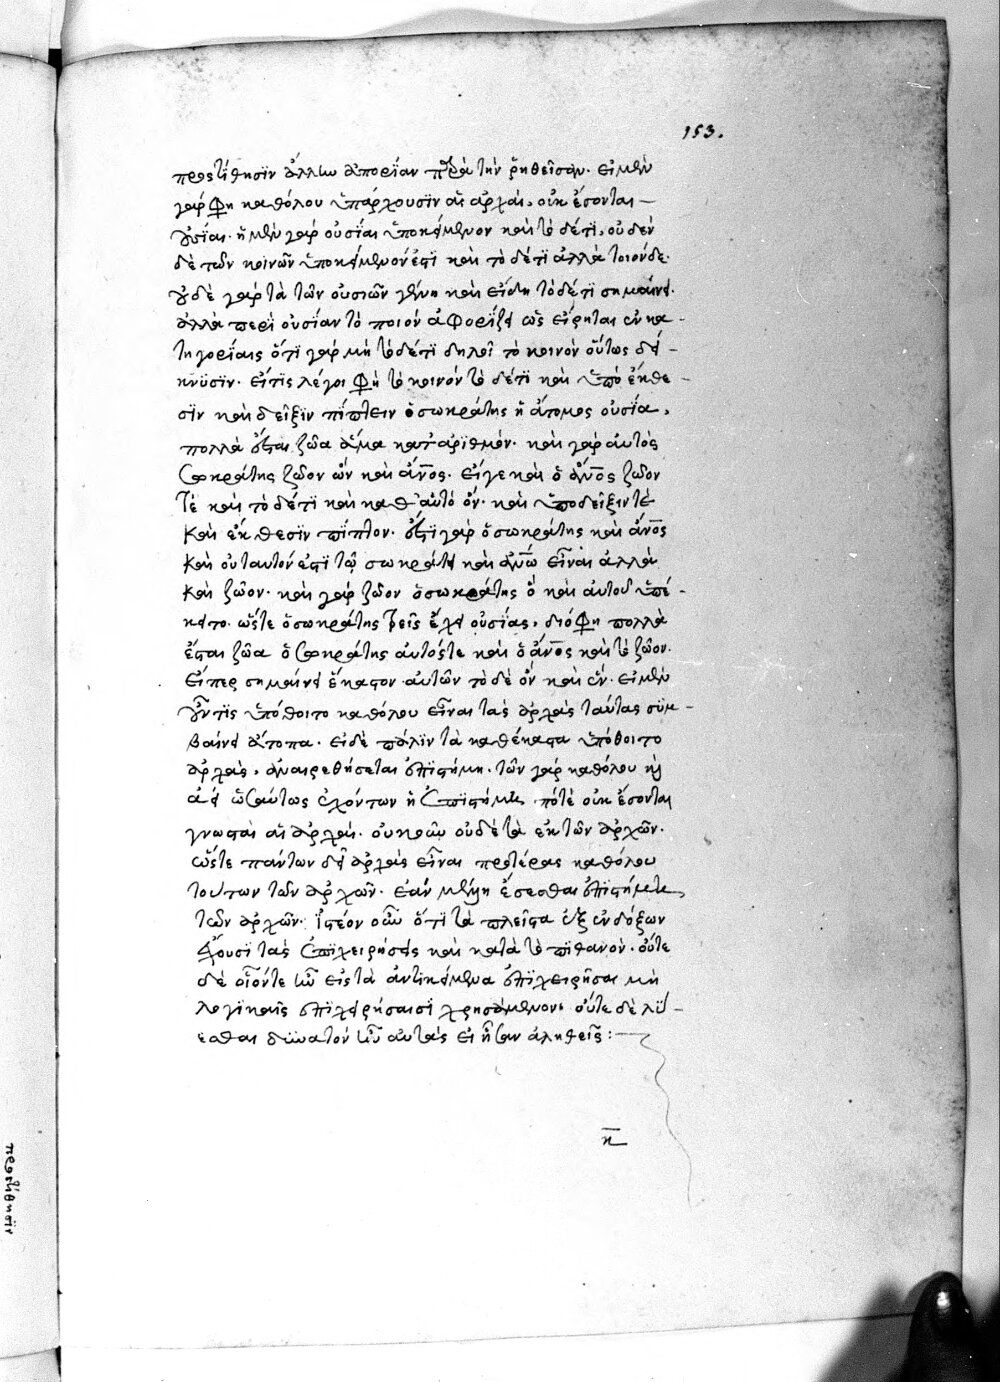 153.
προστίθησϊν ἄλλην ἀπορίαν παρὰ τὴν ῥηθεῖσαν. εἰ μὲν
γάρ φη καθόλου ὑπάρχουσϊν αἱ ἀρχαὶ, οὐκ ἔσονται —
οὐσίαι. ἡ μὲν γάρ οὐσίαι ὑποκείμενον καὶ τὸ δέ τι, οὐδὲν
δὲ τῶν κοινῶν ὑποκείμενον ἐστὶ καὶ τὸ δέ τι ἀλλὰ τοιόνδε.
οὐδὲ γάρ τὰ τῶν οὐσιῶν γένη καὶ εἴδη τὸ δέ τϊ σημαίνει.
ἀλλὰ περὶ οὐσίαν τὸ ποιὸν ἀφορίζει ὡς εἴρηται ἐν κα -
τηγορίαις ὅτϊ γάρ μὴ τὸ δέ τϊ δηλοῖ τὸ κοινὸν οὕτως δεί -
κνϋσϊν. εἴ τϊς λέγοι φὴ τὸ κοινὸν τὸ δέ τϊ καὶ ὑπὸ ἔκθε -
σϊν καὶ δεῖξϊν πίπτειν ὁ σωκράτης ἡ ἄτομος οὐσία,
πολλὰ ἔσται ζῶα ἅμα κατ' ἀρϊθμόν. καὶ γάρ αὐτὸς
Σωκράτης ζῶον ὤν καὶ ἄν̅ο̅ς. εἴγε καὶ ὁ ἄν̅ο̅ς ζῶον
τὲ καὶ τὸ δέ τϊ καὶ καθ' αὑτό ὄν. καὶ ὑπὸ δεῖξιν τὲ
καὶ ἔκθεσϊν πῖπτον. ἔστϊ γάρ ὁ σωκράτης καὶ ἄν̅ο̅ς
καὶ οὐ ταυτόν ἐστϊ τῷ σωκράτει καὶ ἀν̅ω̅ εἶναι ἀλλὰ
καὶ ζῶον. καὶ γάρ ζῶον ὁ σωκράτης ὅ καὶ αὐτοῦ ὑπέ -
κειτο. ὥστε ὁ σωκράτης τρεῖς ἔχει οὐσίας, διό φη πολλὰ
ἔσται ζῶα ὁ Σωκράτης αὐτός τε καὶ ὁ ἄν̅ο̅ς καὶ τὸ ζῶον.
εἴπερ σημαίνει ἕκαστον αὐτῶν τὸ δὲ ὄν καὶ ἕν. εἰ μὲν
οὖν τϊς ὑπόθοιτο καθόλου εἶναι τὰς ἀρχὰς ταύτας σϋμ -
βαίνει ἄτοπα. εἰ δὲ πάλϊν τὰ καθέκαστα ὑπόθοιτο
ἀρχὰς, ἀναιρεθήσεται ἐπιστήμη. τῶν γάρ καθόλου καὶ
ἀεὶ ὡσαύτως ἐχόντων ἡ ἐπϊστήμη, πότὲ οὐκ ἔσονται
γνωσταὶ αἱ ἀρχαί. οὐκοῦν οὐδὲ τὰ ἐκ τῶν ἀρχῶν.
ὥστε πάντων δεῖ ἀρχὰς εἶναι προτέρας καθόλου
τούτων τῶν ἀρχῶν. ἐάν μέλλῃ ἔσεσθαι ἐπϊστήμη,
τῶν ἀρχῶν. ἰστέον οὖν ὅτϊ τὰ πλεῖστα ἐξ ἐνδόξων
ἔχουσϊ τὰς ἐπϊχειρήσεις καὶ κατὰ τὸ πϊθανόν. οὔτε
δὲ οἷόντε ἦν εἰς τὰ ἀντϊκείμενα ἐπϊχειρῆσαι μὴ
λογϊκαῖς ἐπϊχειρήσεσϊ χρησάμενον. οὔτε δὲ λϋ -
εσθαι δϋνατὸν ἦν αὐτὰς εἰ ἦσαν ἀληθεῖς : —
κ̅
προστίθησϊν